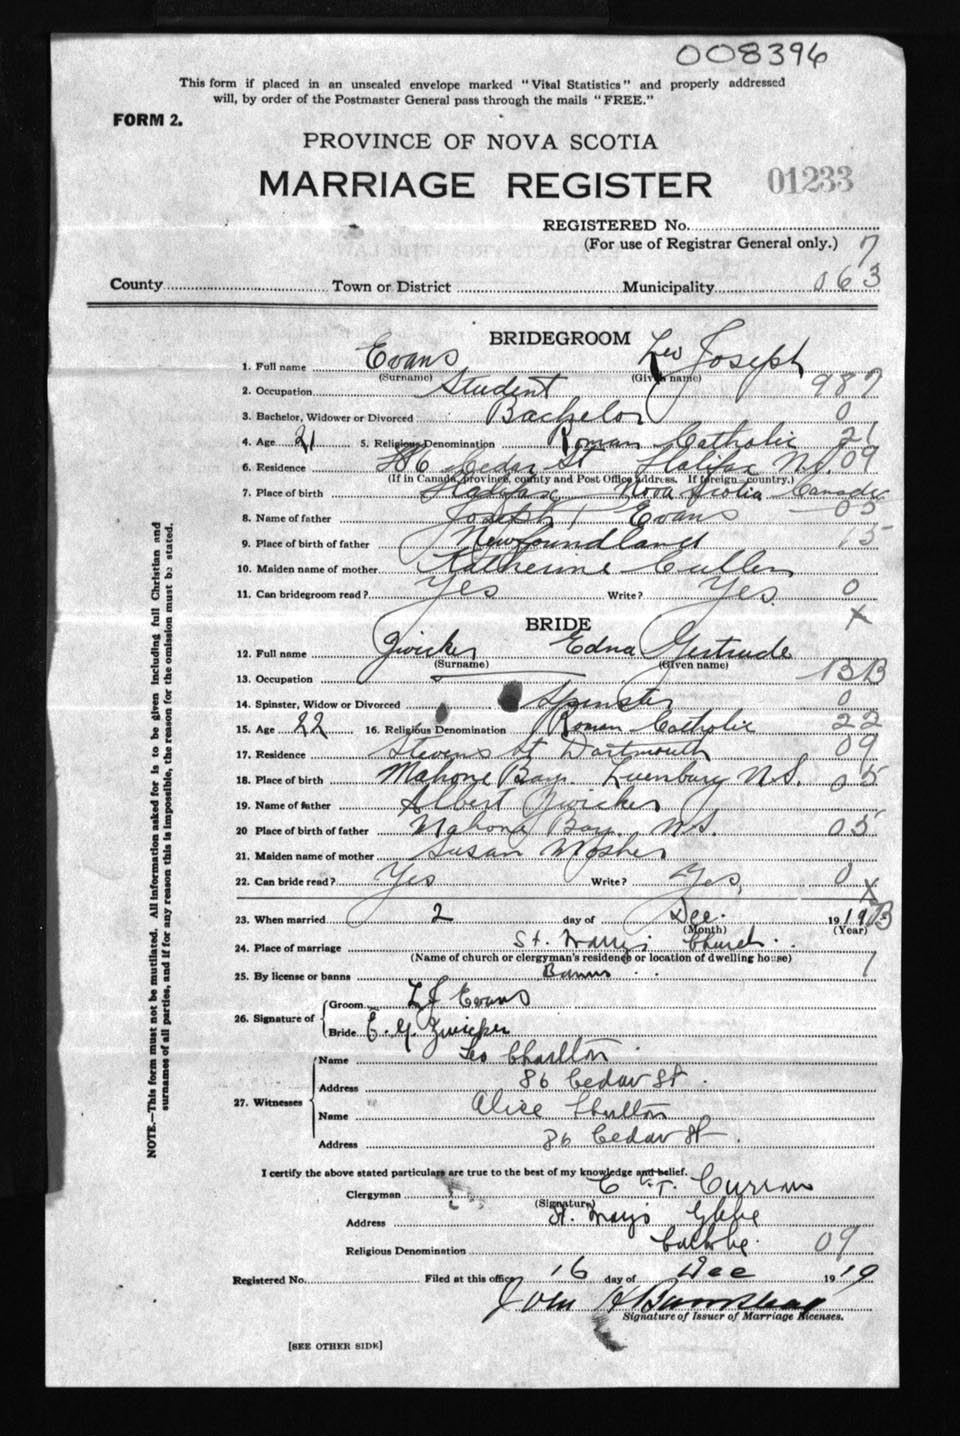 008396
This form if placed in an unsealed envelope marked "Vital Statistics" and properly addressed
will, by order of the Postmaster General pass through the mails "FREE."
FORM 2.
PROVINCE OF NOVA SCOTIA
MARRIAGE REGISTER 01233
REGISTERED No.
(For use of Registrar General only.) 7
County Town or District Municipality 063
BRIDEGROOM
1. Full name Evans Leo Joseph
(Surname) (Given name)
2. Occupation Student 987
3. Bachelor, Widower or Divorced Bachelor 0
4. Age 21 5. Religious Denomination Roman Catholic 21
6. Residence 86 Cedar St Halifax N.S. 09
(If in Canada, province, county and Post Office address. If foreign country.)
7. Place of birth Halifax Nova Scotia Canada
05
8. Name of father Joseph Evans
9. Place of birth of father Newfoundland 15
10. Maiden name of mother Katherine Cullen
11. Can bridegroom read? Yes Write? Yes. 0
X
BRIDE
12. Full name Zwicker Edna Gertrude
(Surname) (Given name)
13. Occupation 13B
14. Spinster, Widow or Divorced Spinster 0
15. Age 22 16. Religious Denomination Roman Catholic 22
17. Residence Stevens St Dartmouth 09
18. Place of birth Mahone Bay. Lunenburg N.S. 05
19. Name of father Albert Zwicker
20 Place of birth of father Mahone Bay. N.S. 05
21. Maiden name of mother Susan Mosher
22. Can bride read? Yes Write? Yes, 0
X
23. When married 2 day of Dec. 1919 B
(Month) (Year)
24. Place of marriage St. Mary's Church
(Name of church or clergyman's residence or location of dwelling house)
25. By license or banns Banns 1
26. Signature of Groom L J Evans
Bride E. G. Zwicker
27. Witnesses
Name Leo Charlton
Address 86 Cedar St.
Name Alice Charlton
Address 86 Cedar St.
I certify the above stated particulars are true to the best of my knowledge and belief.
Clergyman C Curran
(Signature)
Address St. Mary's Glebe
Religious Denomination Catholic. 09
Registered No. Filed at this office 16 day of Dec 1919
John H
Signature of Issuer of Marriage Licenses.
[SEE OTHER SIDE]
NOTE.—This form must not be mutilated. All information asked for is to be given including full Christian and
surnames of all parties, and if for any reason this is impossible, the reason for the omission must be stated.